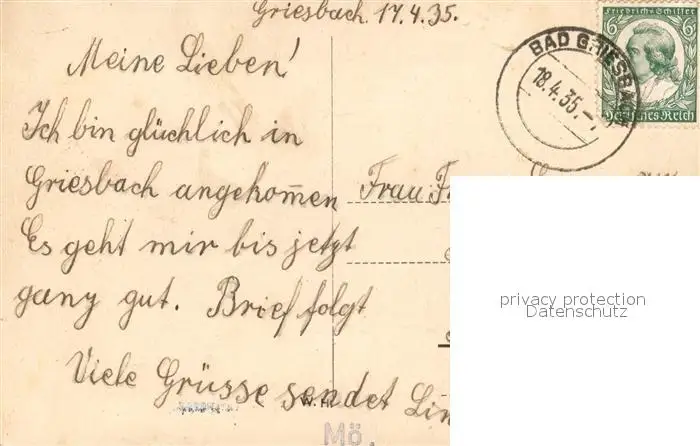 Griesbach. 17.4.35.
Meine Lieben!
Ich bin glüchlich in
Griesbach angekom̄en
Es geht mir bis jetzt
ganz gut. Brief folgt
Viele Grüsse sendet
Frau
Friedrich v. Schiller
6 6
Deutsches Reich
BAD GRIESBACH
18.4.35.-
privacy protection
Datenschutz
W.H.
Mö.